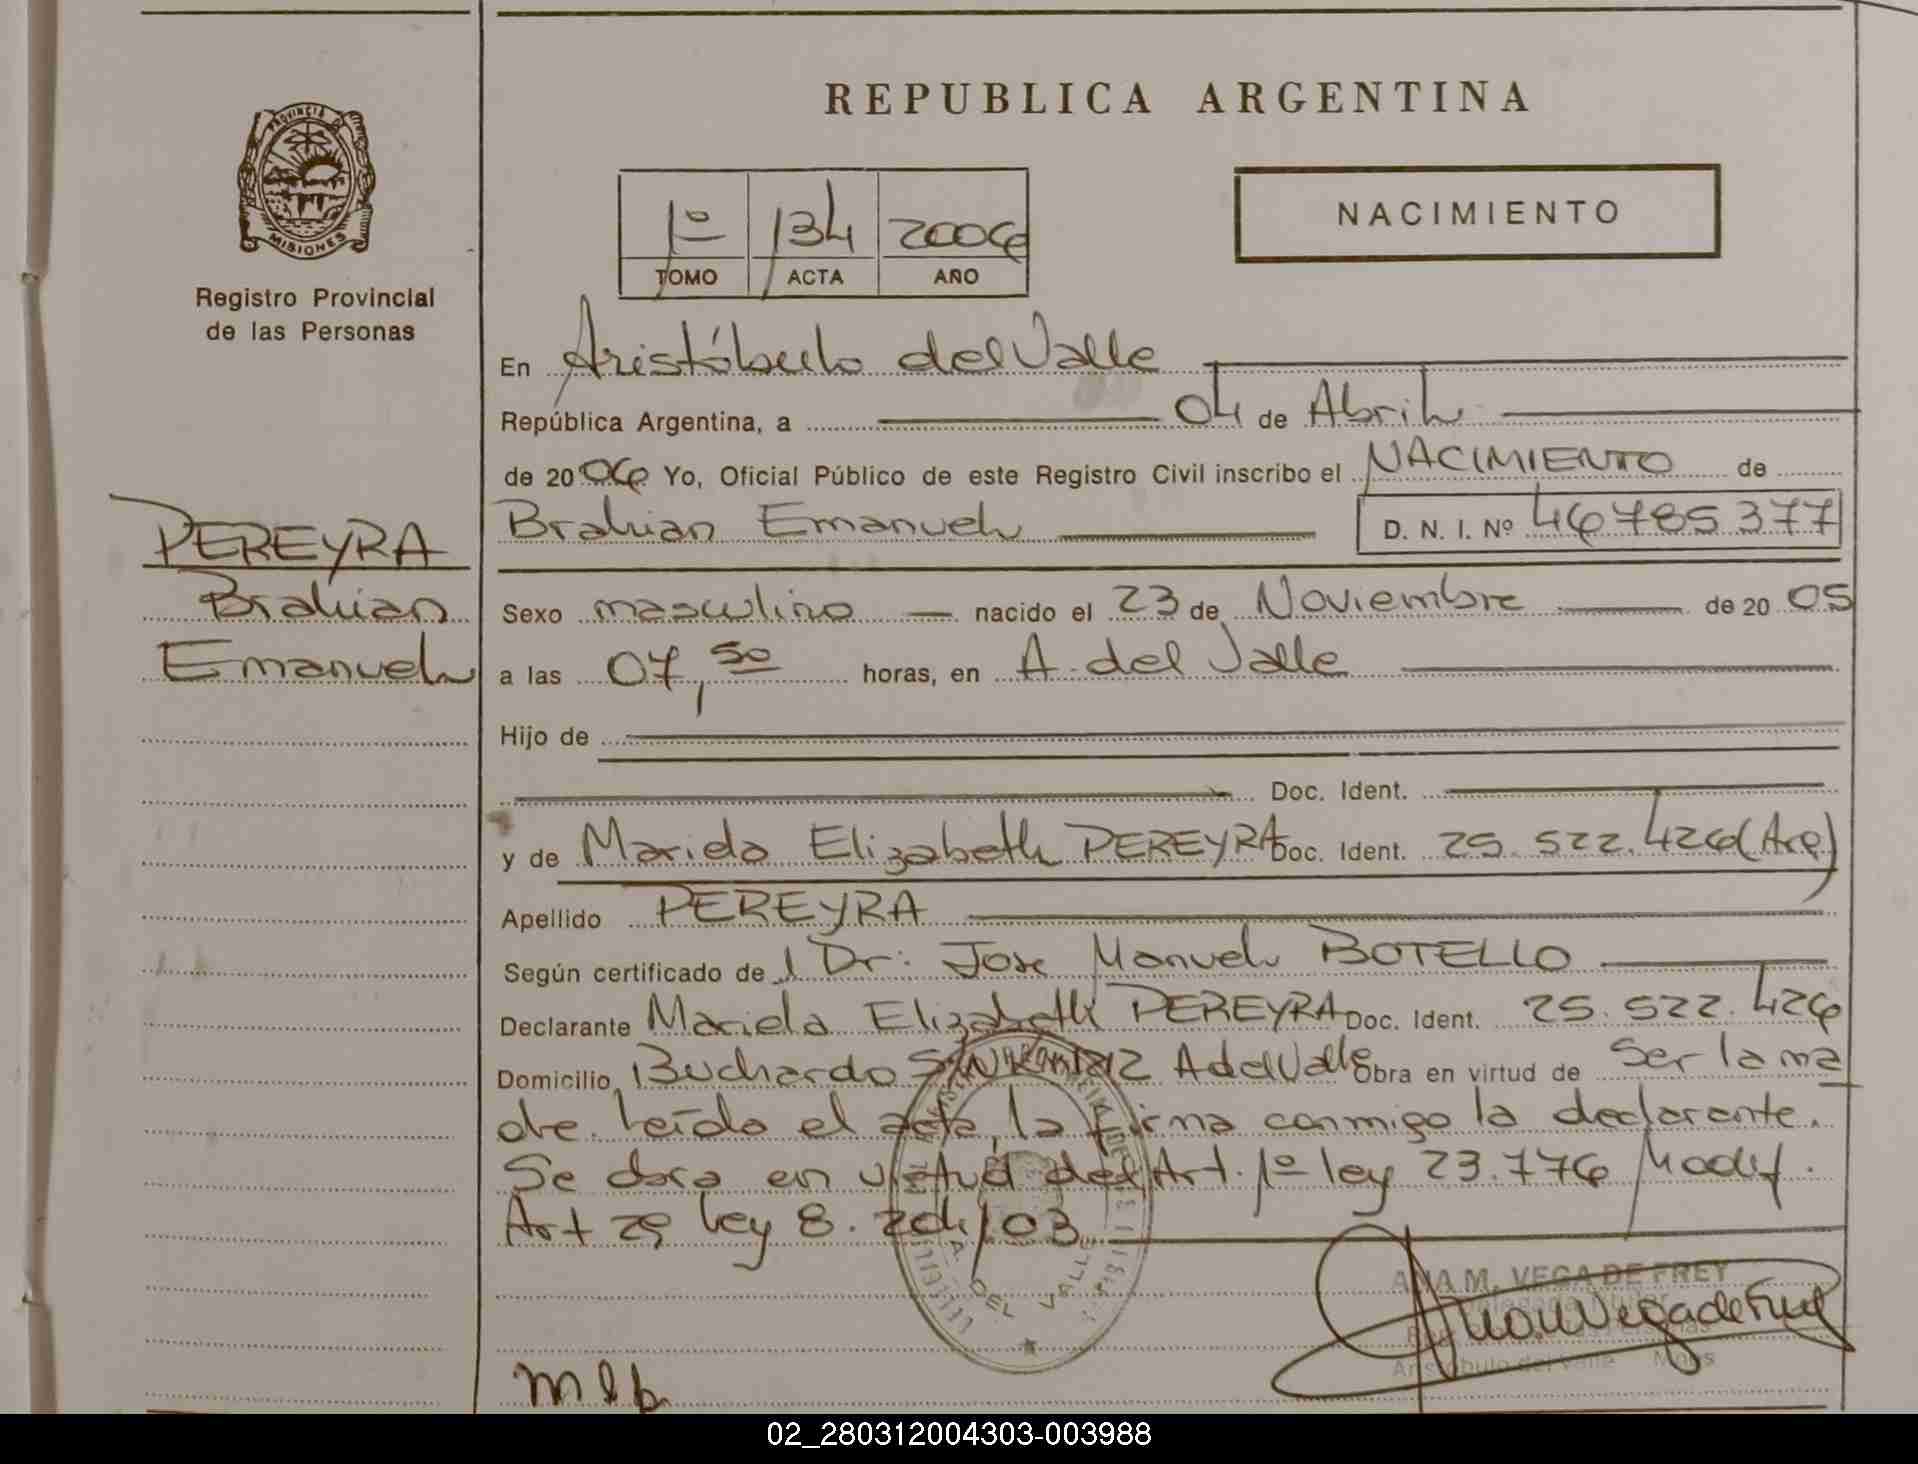 REPUBLICA ARGENTINA
PROVINCIA DE
MISIONES
Registro Provincial
de las Personas
1º 134 2006
TOMO ACTA AÑO
NACIMIENTO
En Aristóbulo del Valle
República Argentina, a 04 de Abril
de 2006 Yo, Oficial Público de este Registro Civil inscribo el NACIMIENTO de
Brahian Emanuel D. N. I. Nº 46785377
PEREYRA
Brahian
Emanuel
Sexo masculino nacido el 23 de Noviembre de 2005
a las 07,50 horas, en A. del Valle
Hijo de
Doc. Ident.
y de Mariela Elizabeth PEREYRA Doc. Ident. 25.522.426 (Arg)
Apellido PEREYRA
Según certificado de Dr: Jose Manuel BOTELLO
Declarante Mariela Elizabeth PEREYRA Doc. Ident. 25.522.426
Domicilio Buchardo S/N A del Valle Obra en virtud de Ser la ma
dre. Leída el acta, la firma conmigo la declarante.
Se labra en virtud del Art. 1º ley 23.776 Modif.
Art 29 ley 8.204/03
A DEL VALLE
ANA M. VEGA DE FREY
Aristóbulo del Valle Mnes
02_280312004303-003988